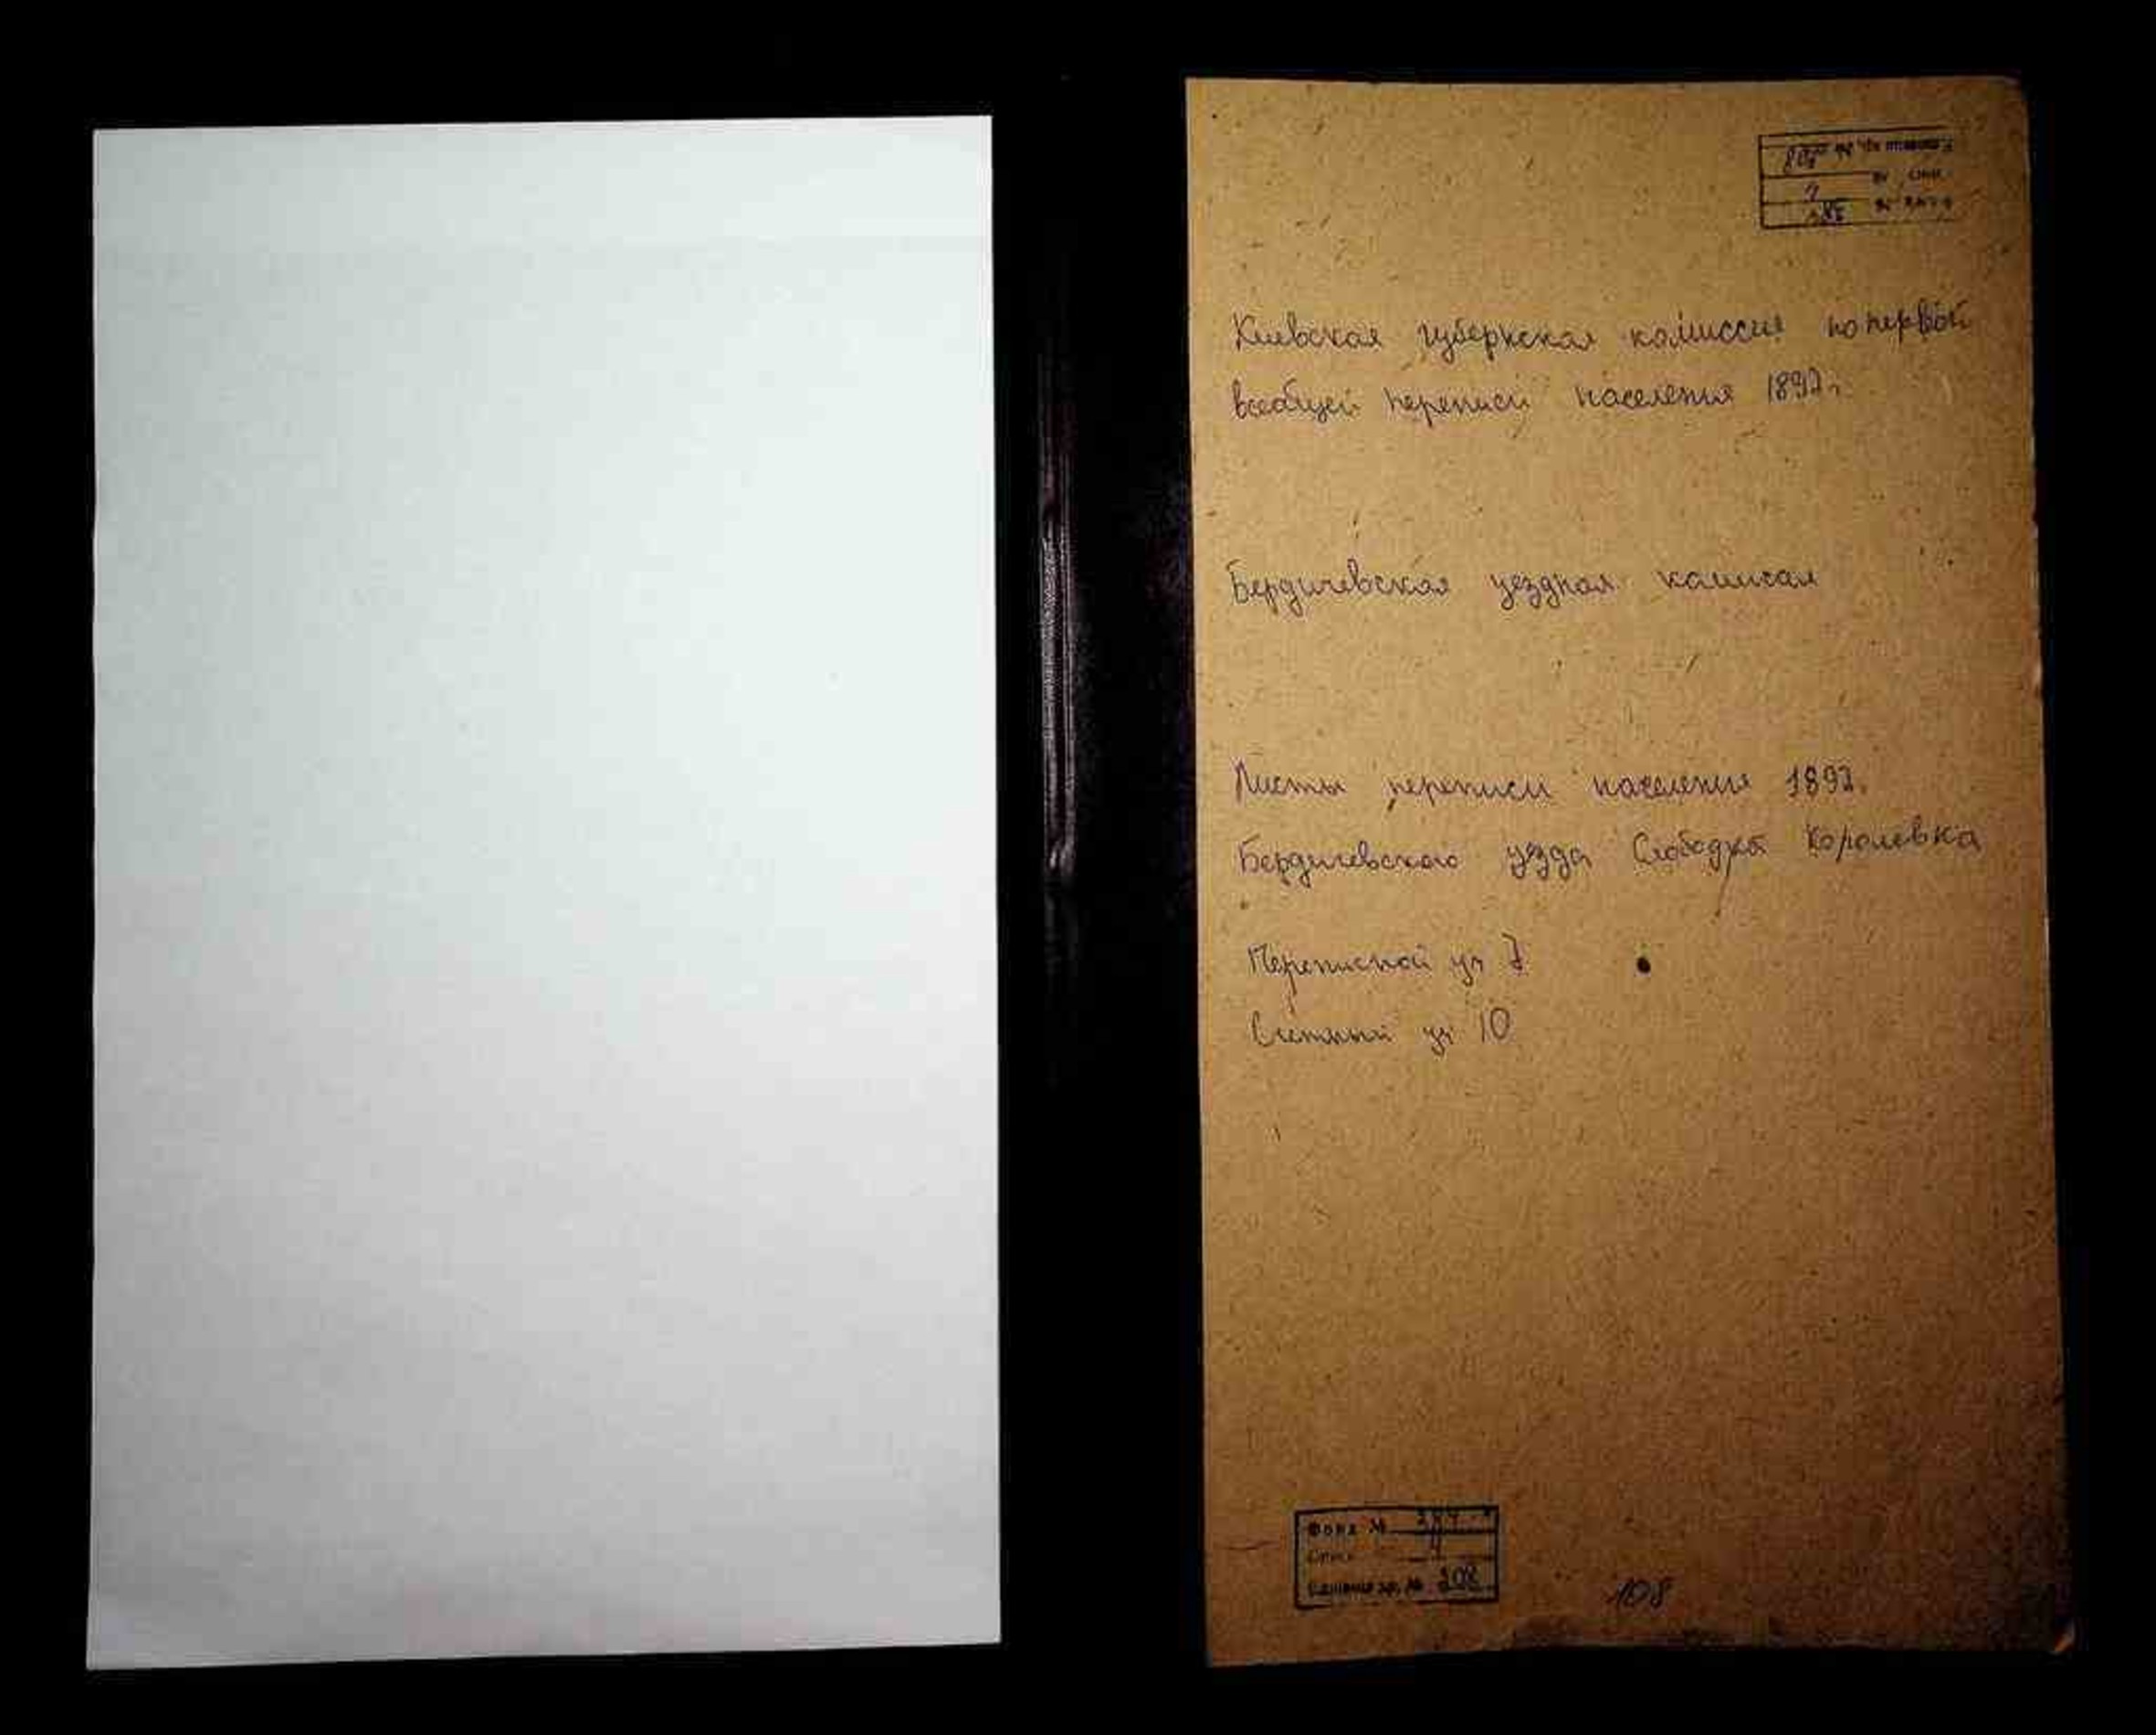 Киевская губернская комиссия по первой
всеобщей переписи населения 1897г.
Бердичевская уездная комиссия
Листы переписи населения 1897.
Бердичевского уезда Слободка Королевка
Переписной уч 7
Счетный уч 10
Фонд №
Опись
Единица хр. № 108
108